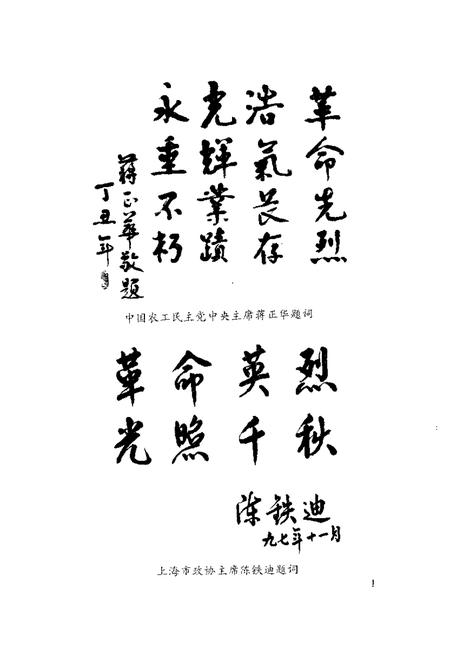 革命先烈
浩氣長存
光輝業蹟
永垂不朽
蔣正華敬題
丁丑年
中国农工民主党中央主席蒋正华题词
革命英烈
光照千秋
陈铁迪
九七年十一月
上海市政协主席陈铁迪题词